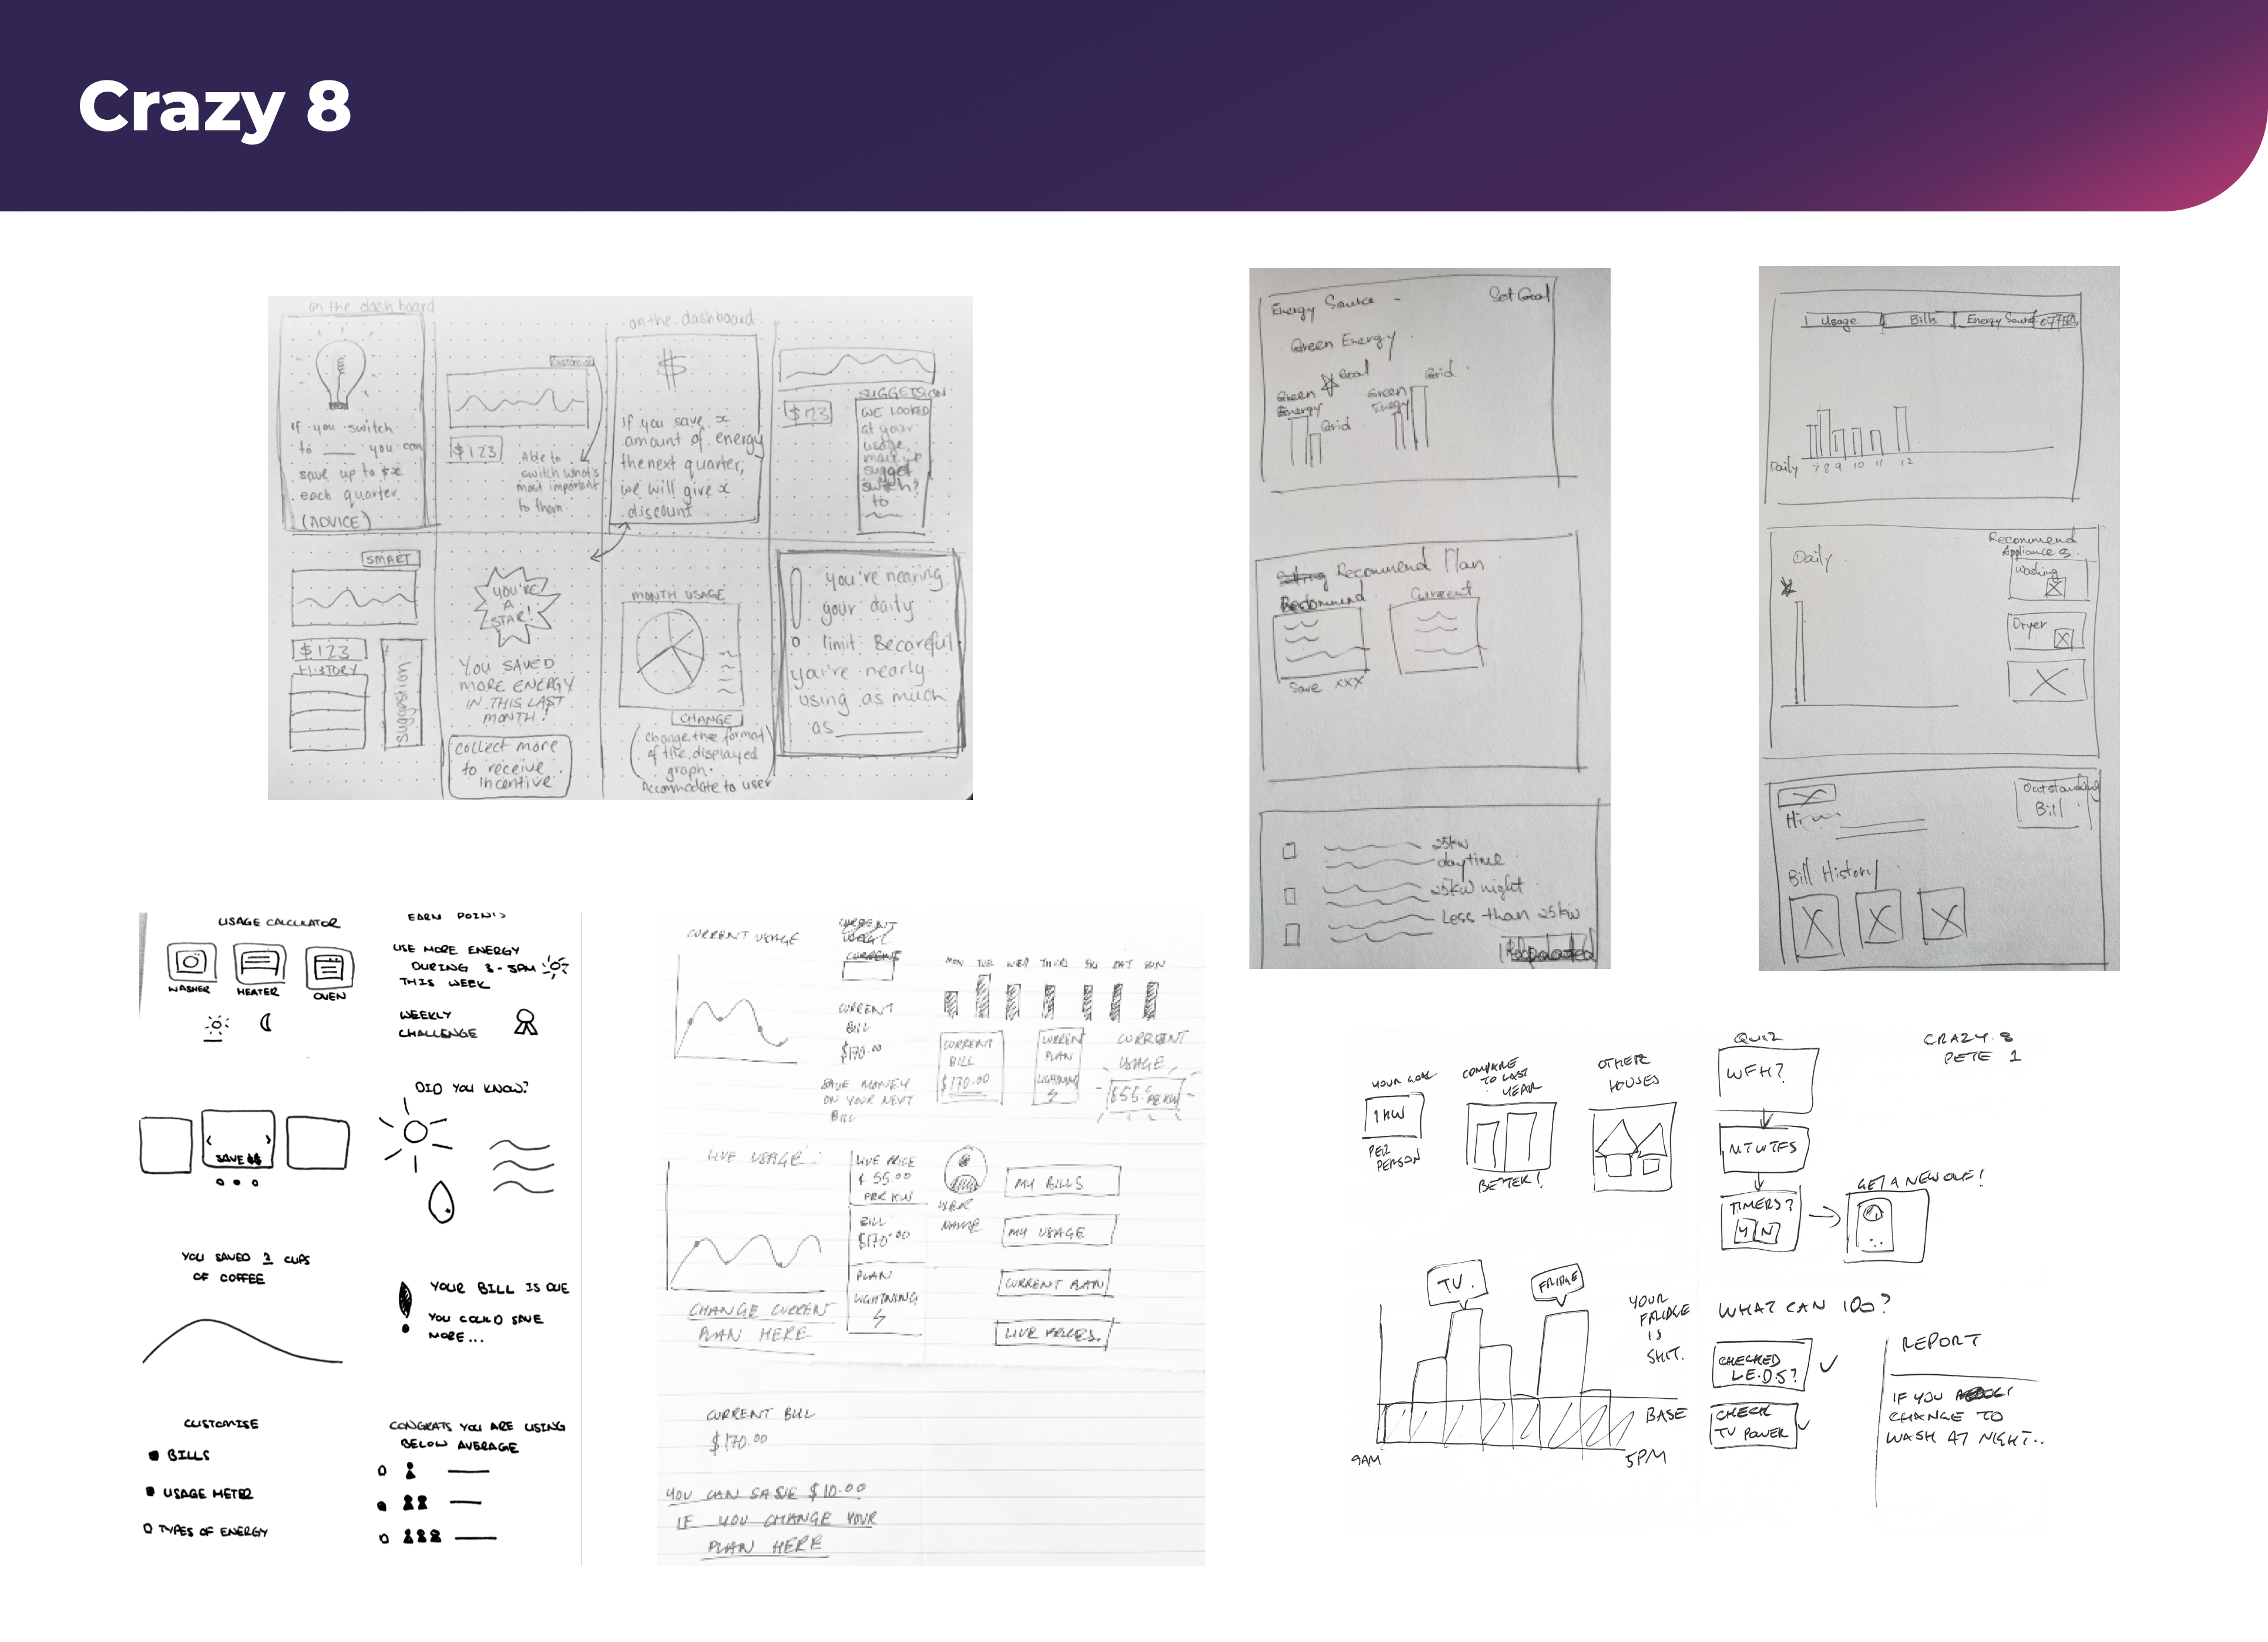 Crazy 8
on the dashboard
If you switch
to ___ you can
save up to $x
each quarter
(ADVICE)
customise
$123
Able to
switch what's
most important
to them
on the dashboard
$
if you save x
amount of energy
the next quarter,
we will give x
discount
$123
SUGGETSION
WE LOOKED
at your
usage,
switch?
to
SMART
$123
HISTORY
suggestion
YOU'RE
A
STAR!
YOU SAVED
MORE ENERGY
IN THIS LAST
MONTH!
collect more
to receive
incentive
MONTH USAGE
CHANGE
change the format
of the displayed
graph.
Accommodate to user
! you're nearing
your daily
limit. Becareful
you're nearly
using as much
as ______
Energy Source -
Set Goal
Green Energy
Goal
Green
Energy
Grid
Green
Energy
Grid
Recommend Plan
Recommend
Current
Save xxx
25kw
daytime
25kw night
Less than 25kw
Usage
Bills
Energy Source
Daily
7 8 9 10 11 12
Daily
Recommend
Appliances
Washing
Dryer
Outstanding
Bill
Hi
Bill History
USAGE CALCULATOR
WASHER
HEATER
OVEN
EARN POINTS
USE MORE ENERGY
DURING 3-5PM
THIS WEEK
WEEKLY
CHALLENGE
SAVE $$
DID YOU KNOW?
YOU SAVED 2 CUPS
OF COFFEE
YOUR BILL IS DUE
YOU COULD SAVE
MORE...
CUSTOMISE
BILLS
USAGE METER
TYPES OF ENERGY
CONGRATS YOU ARE USING
BELOW AVERAGE
CURRENT USAGE
CURRENT
USAGE
CURRENT
CURRENT
BILL
$170.00
SAVE MONEY
ON YOUR NEXT
BILL
MON TUE WED THUR FRI SAT SUN
CURRENT
BILL
$170.00
CURRENT
PLAN
LIGHTNING
CURRENT
USAGE
$55. PER KW
LIVE USAGE
LIVE PRICE
$ 55.00
PER KW
BILL
$170.00
PLAN
LIGHTNING
CHANGE CURRENT
PLAN HERE
USER
NAME
MY BILLS
MY USAGE
CURRENT PLAN
LIVE PRICES.
CURRENT BILL
$170.00
YOU CAN SAVE $10.00
IF YOU CHANGE YOUR
PLAN HERE
YOUR GOAL
1KW
PER
PERSON
COMPARE
TO LAST
YEAR
BETTER!
OTHER
HOUSES
QUIZ
WFH?
MTWTFS
TIMERS?
Y N
GET A NEW ONE!
CRAZY 8
PETE 1
TV.
FRIDGE
YOUR
FRIDGE
IS
SHIT.
BASE
9AM
5PM
WHAT CAN I DO?
CHECKED
L.E.D.S?
CHECK
TV POWER
REPORT
IF YOU
CHANGE TO
WASH AT NIGHT..